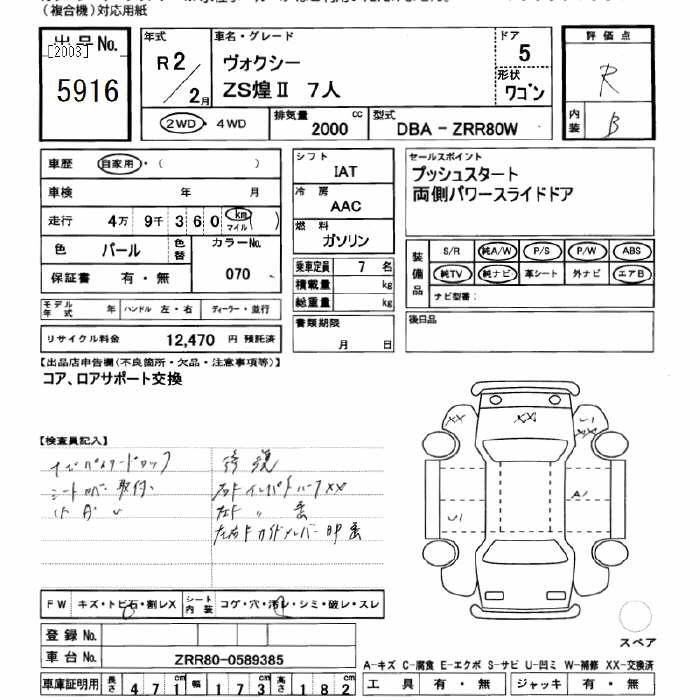 （複合機）対応用紙
出品No.
[2003]
5916
年式
R2/2月
車名・グレード
ヴォクシー
ZS煌Ⅱ 7人
ドア
5
形状
ワゴン
2WD・4WD
排気量
2000 cc
型式
DBA－ZRR80W
評価点
R
内装
B
車歴 自家用・（ ）
車検 年 月
走行 4万 9千 3 6 0 km マイル（ ）
色 パール
色替
カラーNo.
070
保証書 有・無
モデル年式 年 ハンドル 左・右 ディーラー・並行
リサイクル料金 12,470 円 預託済
シフト
IAT
冷房
AAC
燃料
ガソリン
乗車定員 7 名
積載量 kg
総重量 kg
書類期限
月 日
セールスポイント
プッシュスタート
両側パワースライドドア
装備品
S/R 純A/W P/S P/W ABS
純TV 純ナビ 革シート 外ナビ エアB
ナビ型番：
後日品
【出品店申告欄（不良箇所・欠品・注意事項等）】
コア、ロアサポート交換
【検査員記入】
ナビパスワードロック
シートカバー取付
修復
右F インパネ
左F 〃
左右Fサイドメンバー
XX
XX
U1
XX
A1
U1
FW キズ・トビ石・割レX
シート内装 コゲ・穴・汚レ・シミ・破レ・スレ
登録No.
車台No. ZRR80-0589385
車庫証明用 長さ 471cm 幅 173cm 高さ 182cm
スペア
A-キズ C-腐食 E-エクボ S-サビ U-凹ミ W-補修 XX-交換済
工具 有・無 ジャッキ 有・無